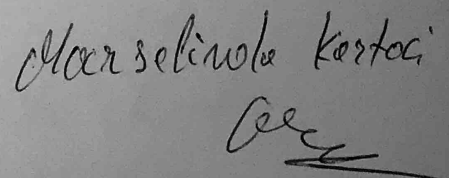 Marselinda Kertoci